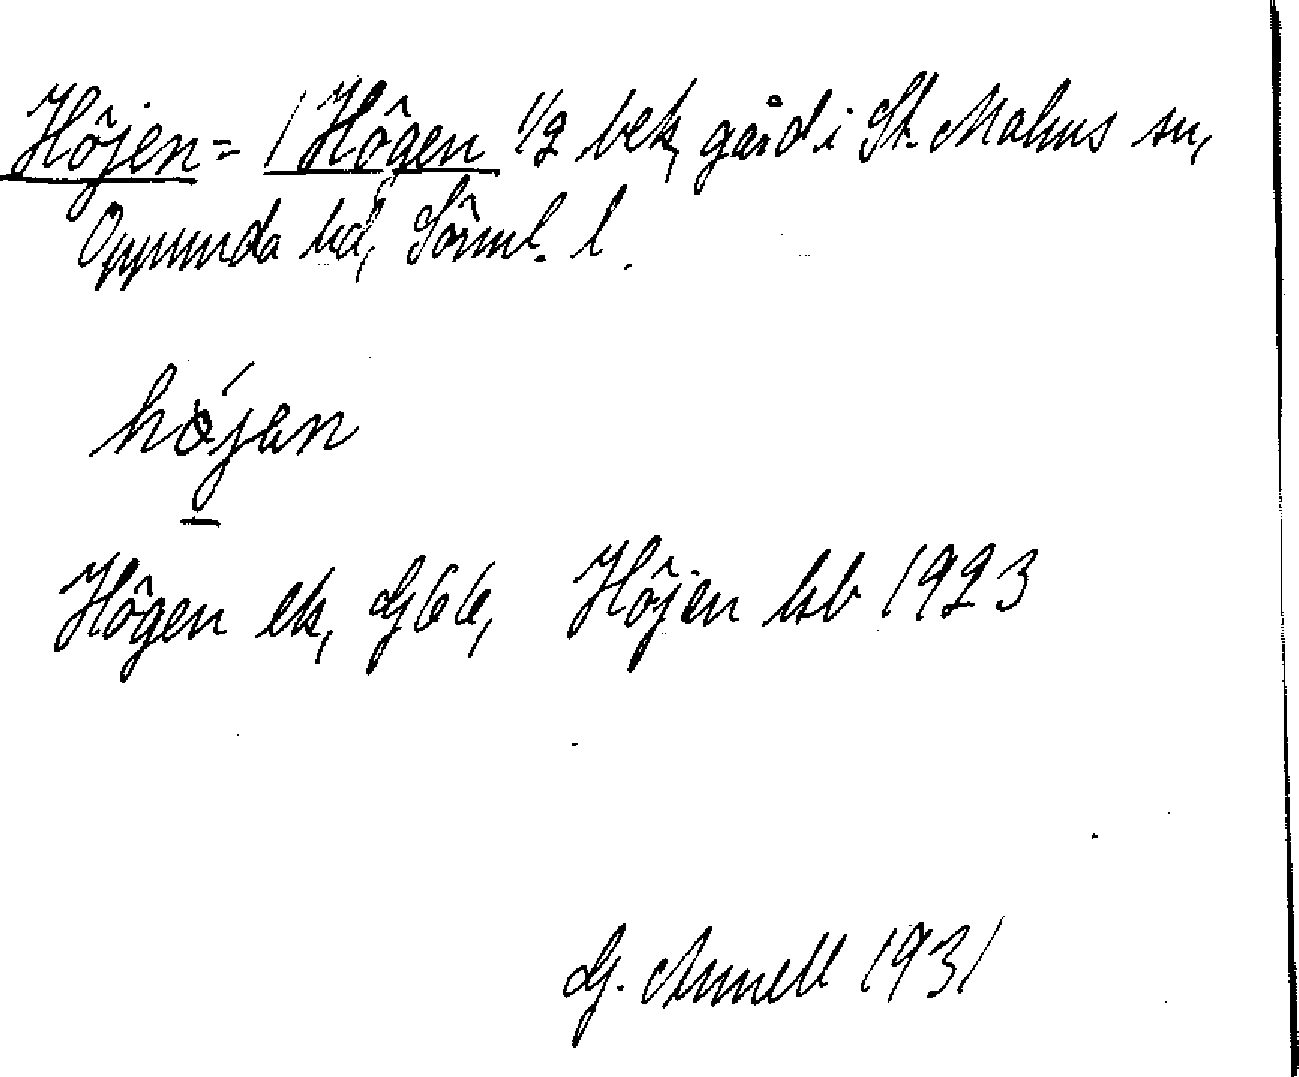 Höjen = / Högen 1/2 bek, gård i St. Malms sn,
Oppunda hd, Sörml. l.
höjan
Högen ek, G66, Höjen ksb 1923
G. Annell 1931